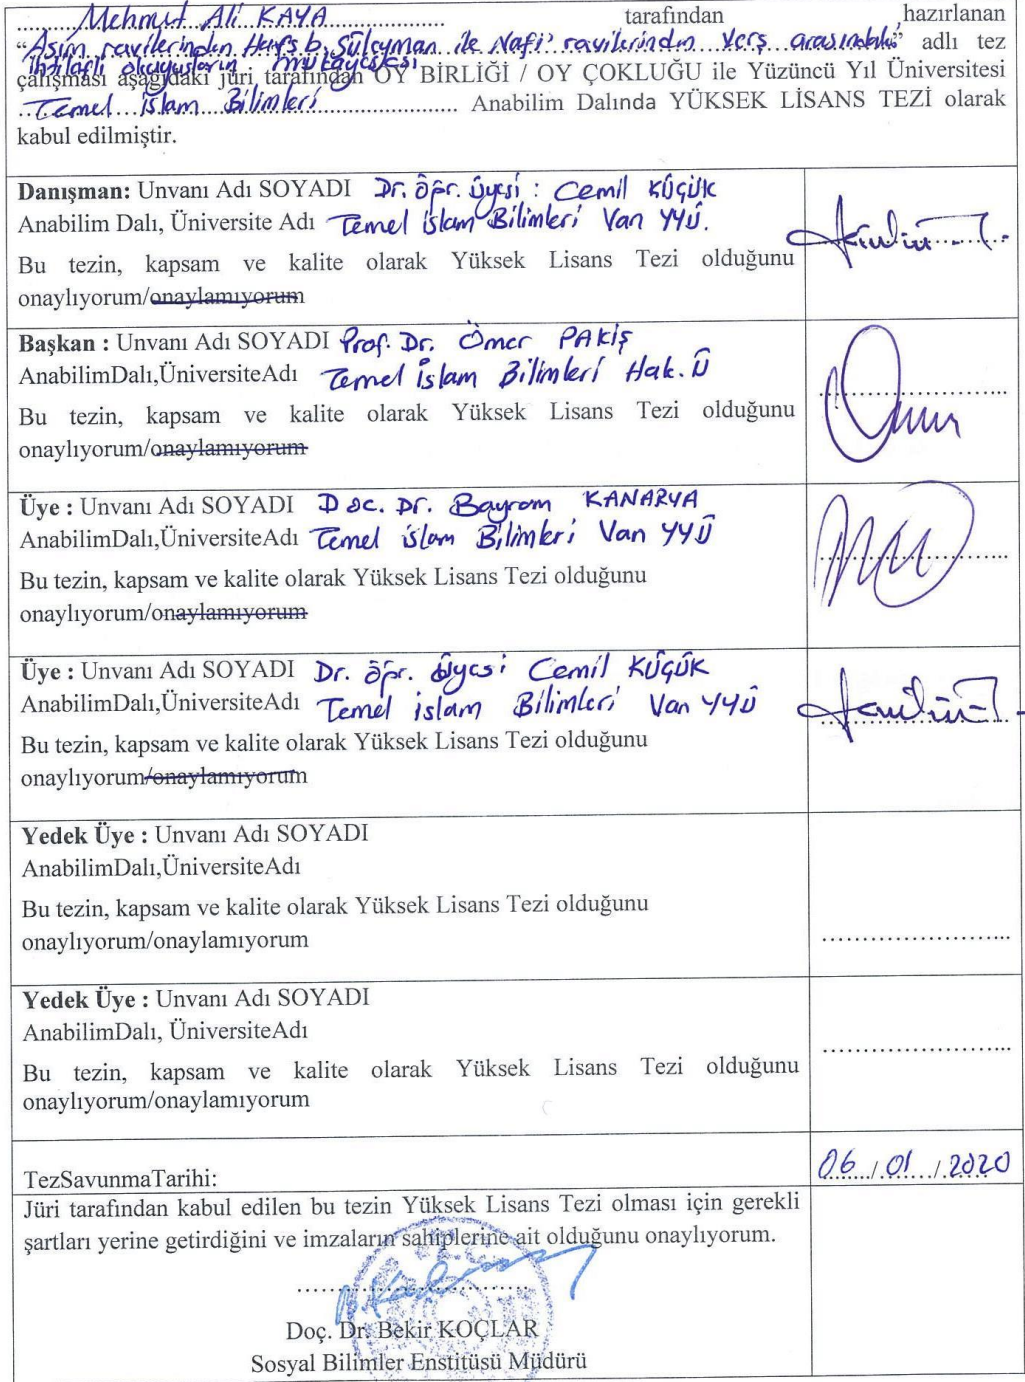 Mehmut Ali KAYA.................. tarafından hazırlanan
“Asım ravilerinden Hafs b. Süleyman ile Nafi' ravilerinden Verş arasındaki” adlı tez
ihtilaflı okuyuşların mukayesesi
çalışması aşağıdaki jüri tarafından OY BİRLİĞİ / OY ÇOKLUĞU ile Yüzüncü Yıl Üniversitesi
Temel İslam Bilimleri .................. Anabilim Dalında YÜKSEK LİSANS TEZİ olarak
kabul edilmiştir.
Danışman: Unvanı Adı SOYADI Dr. öğr. üyesi : Cemil KÜÇÜK
Anabilim Dalı, Üniversite Adı Temel islam Bilimleri Van YYÜ.
Bu tezin, kapsam ve kalite olarak Yüksek Lisans Tezi olduğunu
onaylıyorum/onaylamıyorum
Başkan : Unvanı Adı SOYADI Prof. Dr. Ömer PAKİŞ
AnabilimDalı,ÜniversiteAdı Temel İslam Bilimleri Hak. Ü
Bu tezin, kapsam ve kalite olarak Yüksek Lisans Tezi olduğunu
onaylıyorum/onaylamıyorum
Üye : Unvanı Adı SOYADI Doc. Dr. Bayram KANARYA
AnabilimDalı,ÜniversiteAdı Temel islam Bilimleri Van YYÜ
Bu tezin, kapsam ve kalite olarak Yüksek Lisans Tezi olduğunu
onaylıyorum/onaylamıyorum
Üye : Unvanı Adı SOYADI Dr. öğr. üyesi Cemil KÜÇÜK
AnabilimDalı,ÜniversiteAdı Temel islam Bilimleri Van YYÜ
Bu tezin, kapsam ve kalite olarak Yüksek Lisans Tezi olduğunu
onaylıyorum/onaylamıyorum
Yedek Üye : Unvanı Adı SOYADI
AnabilimDalı,ÜniversiteAdı
Bu tezin, kapsam ve kalite olarak Yüksek Lisans Tezi olduğunu
onaylıyorum/onaylamıyorum
Yedek Üye : Unvanı Adı SOYADI
AnabilimDalı, ÜniversiteAdı
Bu tezin, kapsam ve kalite olarak Yüksek Lisans Tezi olduğunu
onaylıyorum/onaylamıyorum
TezSavunmaTarihi: 06 / 01 / 2020
Jüri tarafından kabul edilen bu tezin Yüksek Lisans Tezi olması için gerekli
şartları yerine getirdiğini ve imzaların sahiplerine ait olduğunu onaylıyorum.
Doç. Dr. Bekir KOÇLAR
Sosyal Bilimler Enstitüsü Müdürü